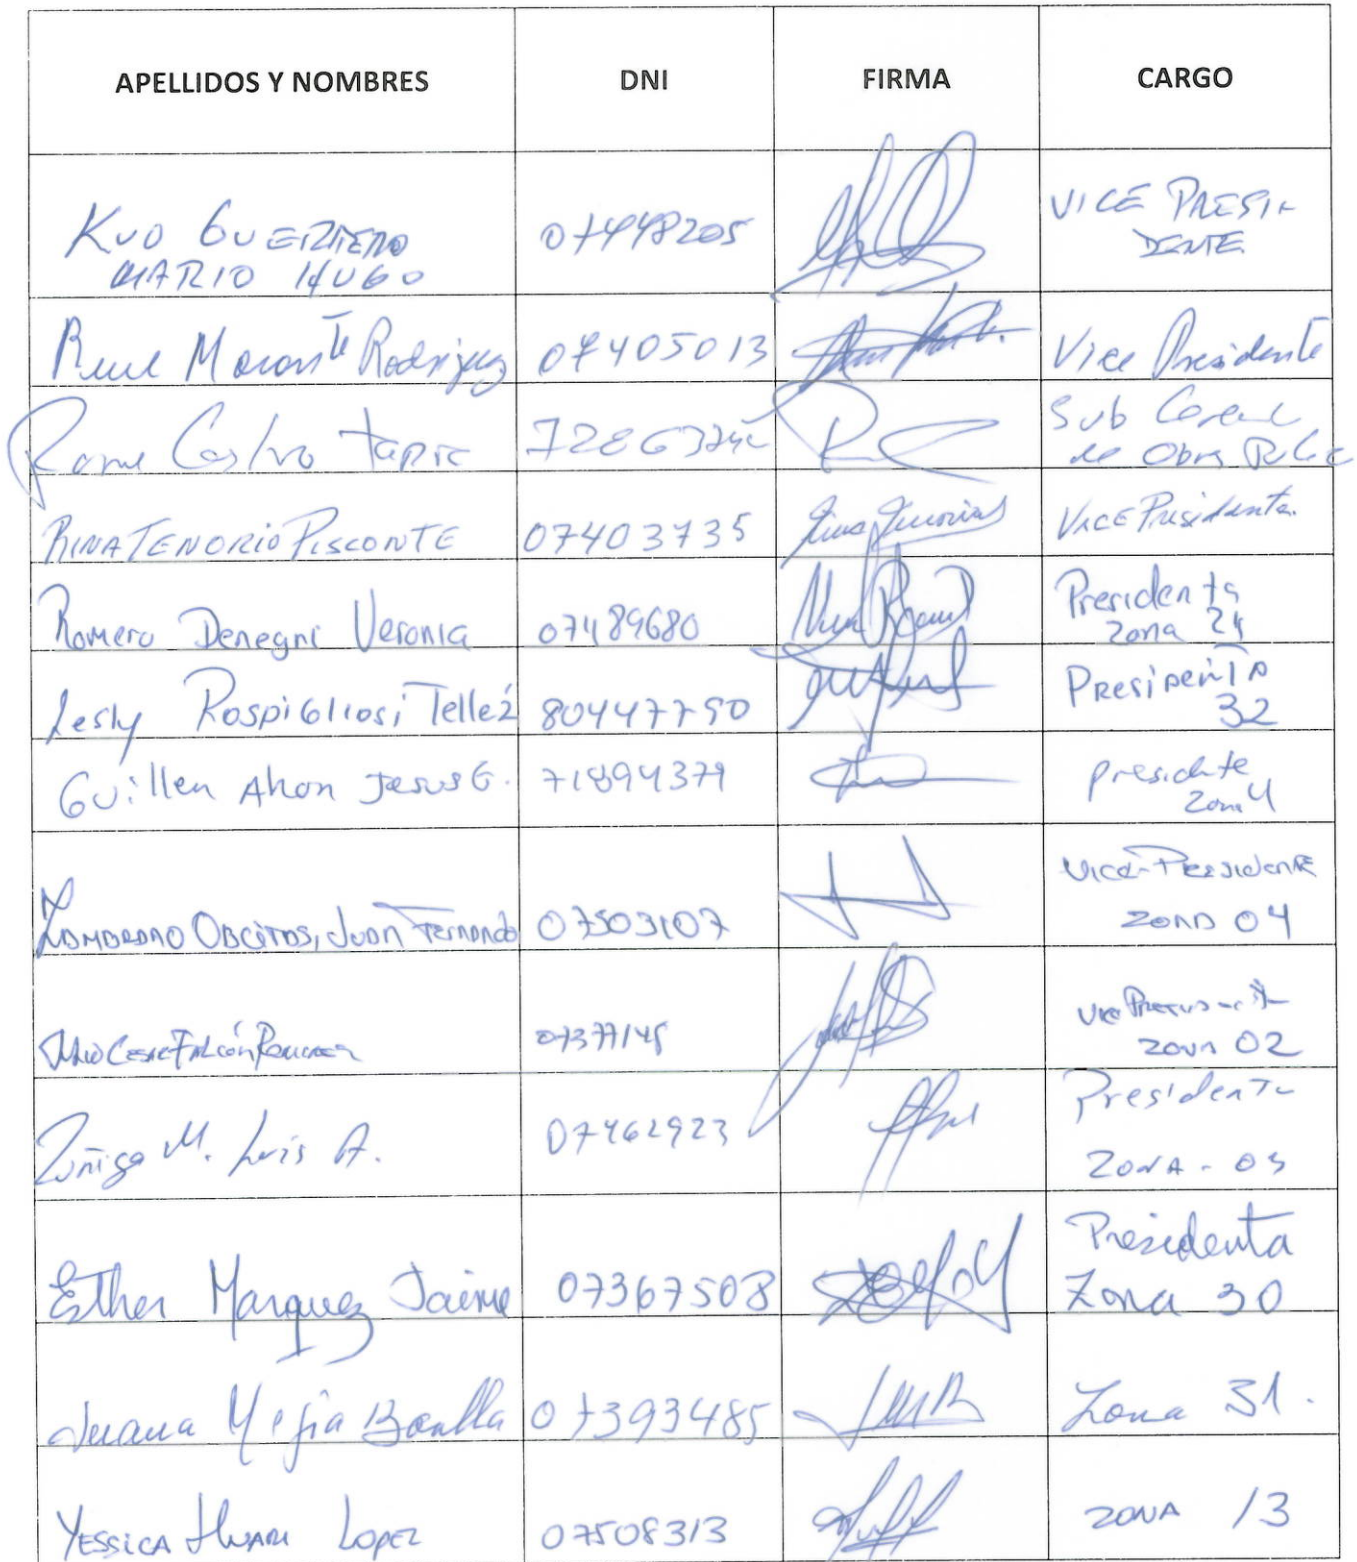 APELLIDOS Y NOMBRES DNI FIRMA CARGO
KUO GUERRERO 07448205 VICE PRESI-
MARIO HUGO DENTE
Morante Rodriguez 07405013 Vice Presidente
Castro Tapia Sub
de Obra
RINA TENORIO PISCONTE 07403735 VICE Presidenta.
Romero Denegri Veronica 07489680 Presidenta
zona 24
Lesly Rospigliosi Tellez 80447750 Presidenta
32
Guillen Ahon Jesus G. 71894379 presidente
Zona 4
Juan Fernando 07503107 Vice-Presidente
ZONA 04
Falcón
ZONA 02
Zuñiga M. Luis A. 07462923 Presidente
ZONA - 03
Esther Marquez Jaime 07367508 Presidenta
Zona 30
Juana Mejia Bonilla 07393485 Zona 31.
YESSICA HUARI LOPEZ 07508313 ZONA 13